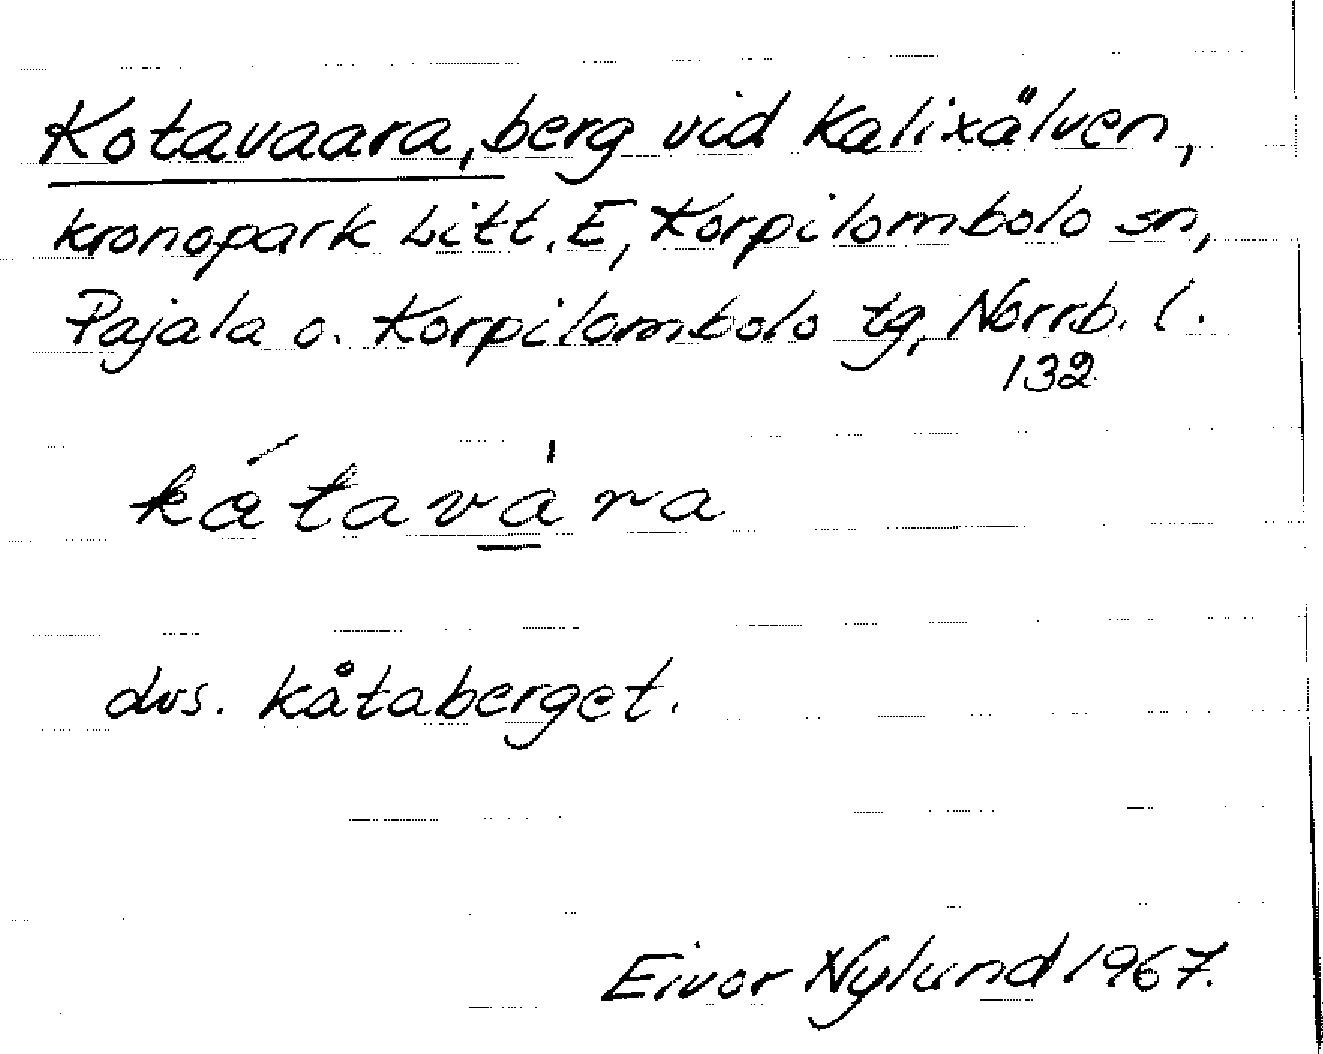 Kotavaara, berg vid Kalixälven,
kronopark Litt. E, Korpilombolo sn,
Pajala o. Korpilombolo tg, Norrb. l.
132
dvs. kåtaberget.
Eivor Nylund 1967.